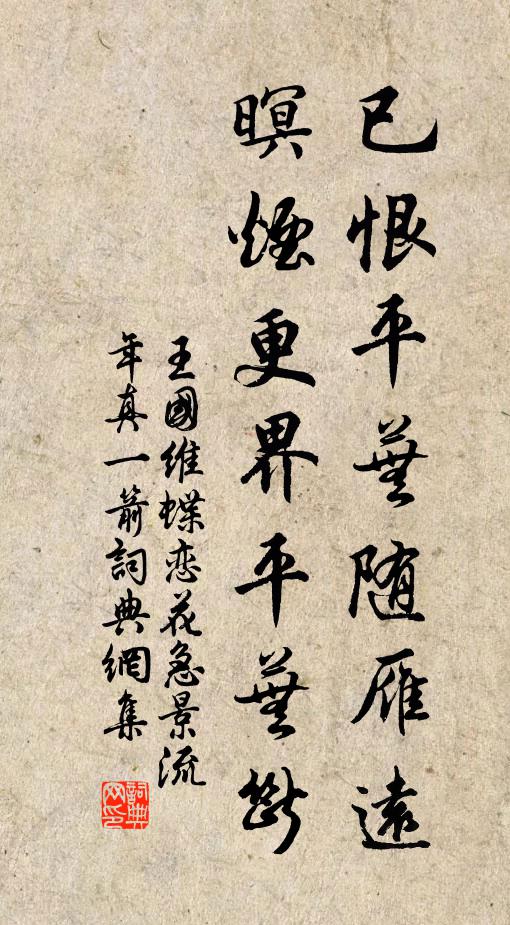 已恨平蕪随雁遠
暝煙更界平蕪斷
王國維蝶恋花急景流
年真一箭詞典網集
詞典网印